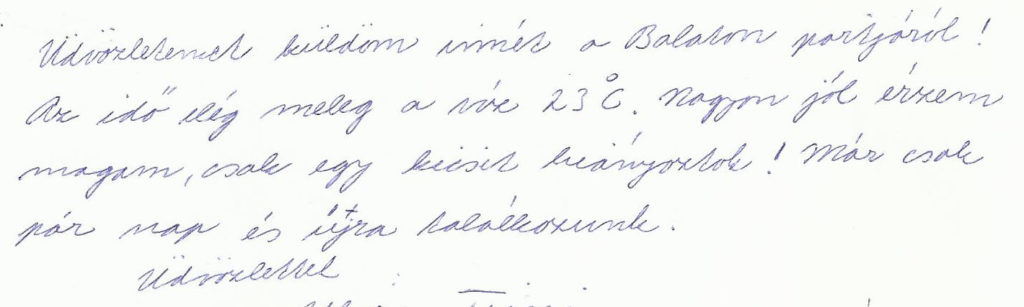 Üdvözletemet küldöm ismét a Balaton partjáról!
Az idő elég meleg a víz 23°C. Nagyon jól érzem
magam, csak egy kicsit hiányoztok! Már csak
pár nap és újra találkozunk.
Üdvözlettel